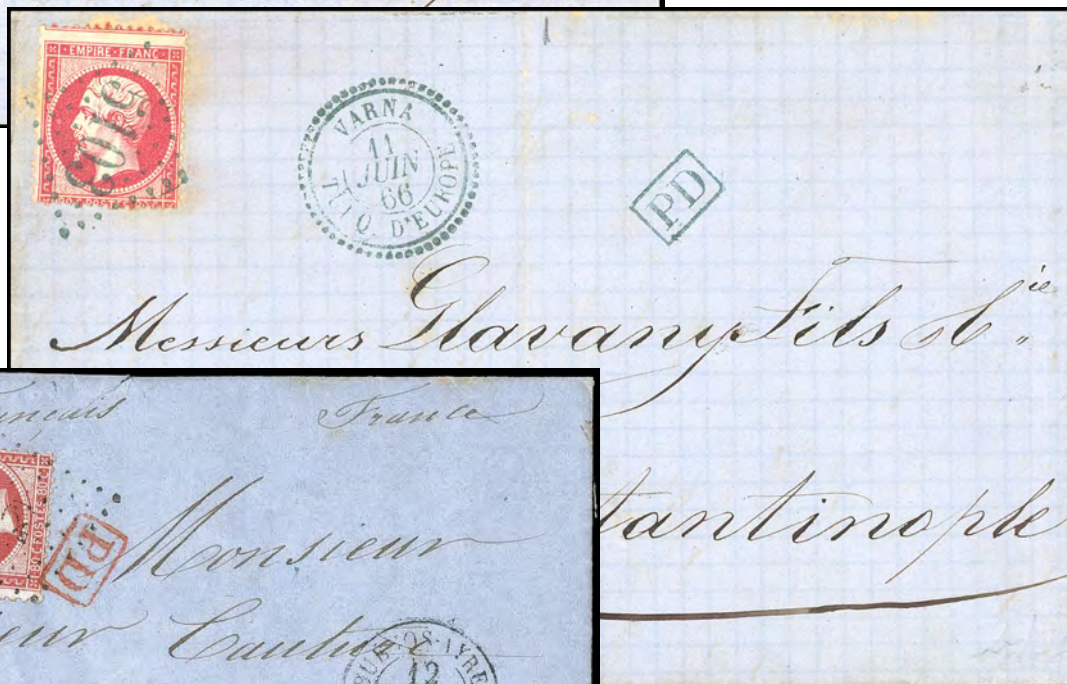 EMPIRE FRANC
5103
80 C POSTES 80 C
VARNA
11
JUIN
66
TURQ D'EUROPE
PD
Messieurs Glavany Fils & Cie
tantinople
ançais France
80 C POSTES 80 C
PD
Monsieur
eur
BUENOS-AYRES
12